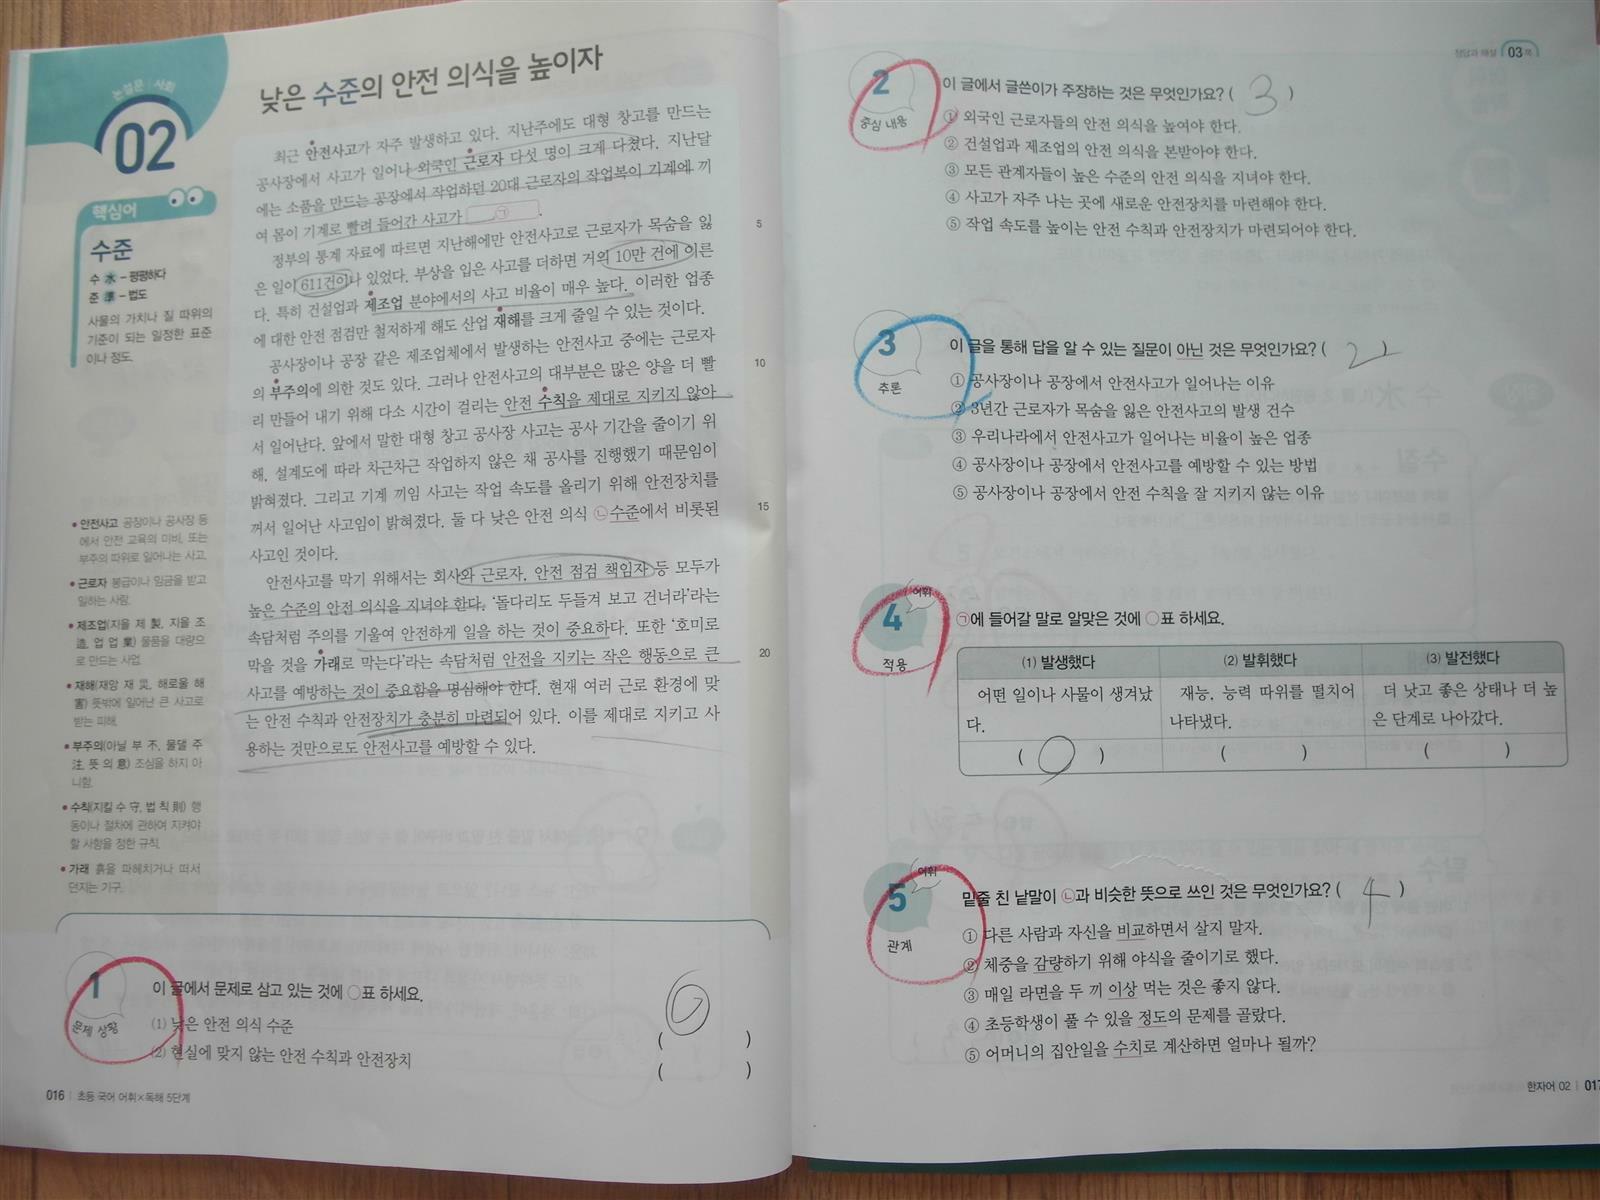 논설문 | 사회
02
낮은 수준의 안전 의식을 높이자
핵심어
수준
수 水 – 평평하다
준 準 – 법도
사물의 가치나 질 따위의
기준이 되는 일정한 표준
이나 정도.
최근 안전사고가 자주 발생하고 있다. 지난주에도 대형 창고를 만드는
공사장에서 사고가 일어나 외국인 근로자 다섯 명이 크게 다쳤다. 지난달
에는 소품을 만드는 공장에서 작업하던 20대 근로자의 작업복이 기계에 끼
여 몸이 기계로 빨려 들어간 사고가 ㉠.
정부의 통계 자료에 따르면 지난해에만 안전사고로 근로자가 목숨을 잃
5
은 일이 611건이나 있었다. 부상을 입은 사고를 더하면 거의 10만 건에 이른
다. 특히 건설업과 제조업 분야에서의 사고 비율이 매우 높다. 이러한 업종
에 대한 안전 점검만 철저하게 해도 산업 재해를 크게 줄일 수 있는 것이다.
공사장이나 공장 같은 제조업체에서 발생하는 안전사고 중에는 근로자
의 부주의에 의한 것도 있다. 그러나 안전사고의 대부분은 많은 양을 더 빨
10
리 만들어 내기 위해 다소 시간이 걸리는 안전 수칙을 제대로 지키지 않아
서 일어난다. 앞에서 말한 대형 창고 공사장 사고는 공사 기간을 줄이기 위
해, 설계도에 따라 차근차근 작업하지 않은 채 공사를 진행했기 때문임이
밝혀졌다. 그리고 기계 끼임 사고는 작업 속도를 올리기 위해 안전장치를
꺼서 일어난 사고임이 밝혀졌다. 둘 다 낮은 안전 의식 ㉡수준에서 비롯된
15
사고인 것이다.
안전사고를 막기 위해서는 회사와 근로자, 안전 점검 책임자 등 모두가
높은 수준의 안전 의식을 지녀야 한다. '돌다리도 두들겨 보고 건너라'라는
속담처럼 주의를 기울여 안전하게 일을 하는 것이 중요하다. 또한 '호미로
막을 것을 가래로 막는다'라는 속담처럼 안전을 지키는 작은 행동으로 큰
20
사고를 예방하는 것이 중요함을 명심해야 한다. 현재 여러 근로 환경에 맞
는 안전 수칙과 안전장치가 충분히 마련되어 있다. 이를 제대로 지키고 사
용하는 것만으로도 안전사고를 예방할 수 있다.
• 안전사고 공장이나 공사장 등
에서 안전 교육의 미비, 또는
부주의 따위로 일어나는 사고.
• 근로자 봉급이나 임금을 받고
일하는 사람.
• 제조업(지을 제 製, 지을 조
造, 업 업 業) 물품을 대량으
로 만드는 사업.
• 재해(재앙 재 災, 해로울 해
害) 뜻밖에 일어난 큰 사고로
받는 피해.
• 부주의(아닐 부 不, 물댈 주
注, 뜻 의 意) 조심을 하지 아
니함.
• 수칙(지킬 수 守, 법 칙 則) 행
동이나 절차에 관하여 지켜야
할 사항을 정한 규칙.
• 가래 흙을 파헤치거나 떠서
던지는 기구.
1
문제 상황
이 글에서 문제로 삼고 있는 것에 ○표 하세요.
(1) 낮은 안전 의식 수준 ( ○ )
(2) 현실에 맞지 않는 안전 수칙과 안전장치 ( )
016 | 초등 국어 어휘×독해 5단계
정답과 해설 03쪽
2
중심 내용
이 글에서 글쓴이가 주장하는 것은 무엇인가요? ( 3 )
① 외국인 근로자들의 안전 의식을 높여야 한다.
② 건설업과 제조업의 안전 의식을 본받아야 한다.
③ 모든 관계자들이 높은 수준의 안전 의식을 지녀야 한다.
④ 사고가 자주 나는 곳에 새로운 안전장치를 마련해야 한다.
⑤ 작업 속도를 높이는 안전 수칙과 안전장치가 마련되어야 한다.
3
추론
이 글을 통해 답을 알 수 있는 질문이 아닌 것은 무엇인가요? ( 2 )
① 공사장이나 공장에서 안전사고가 일어나는 이유
② 3년간 근로자가 목숨을 잃은 안전사고의 발생 건수
③ 우리나라에서 안전사고가 일어나는 비율이 높은 업종
④ 공사장이나 공장에서 안전사고를 예방할 수 있는 방법
⑤ 공사장이나 공장에서 안전 수칙을 잘 지키지 않는 이유
어휘
4
적용
㉠에 들어갈 말로 알맞은 것에 ○표 하세요.
(1) 발생했다 (2) 발휘했다 (3) 발전했다
어떤 일이나 사물이 생겨났 재능, 능력 따위를 떨치어 더 낫고 좋은 상태나 더 높
다. 나타냈다. 은 단계로 나아갔다.
( ○ ) ( ) ( )
어휘
5
관계
밑줄 친 낱말이 ㉡과 비슷한 뜻으로 쓰인 것은 무엇인가요? ( 4 )
① 다른 사람과 자신을 비교하면서 살지 말자.
② 체중을 감량하기 위해 야식을 줄이기로 했다.
③ 매일 라면을 두 끼 이상 먹는 것은 좋지 않다.
④ 초등학생이 풀 수 있을 정도의 문제를 골랐다.
⑤ 어머니의 집안일을 수치로 계산하면 얼마나 될까?
한자어 02 | 017